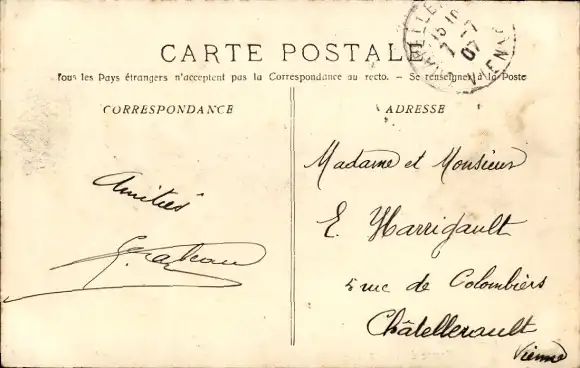 CARTE POSTALE
Tous les Pays étrangers n'acceptent pas la Correspondance au recto. – Se renseigner à la Poste
CORRESPONDANCE
Amitiés
ADRESSE
Madame et Monsieur
E. Harrigault
5 rue de Colombiers
Châtellerault
Vienne
15 10
7 -7
07
VIENNE